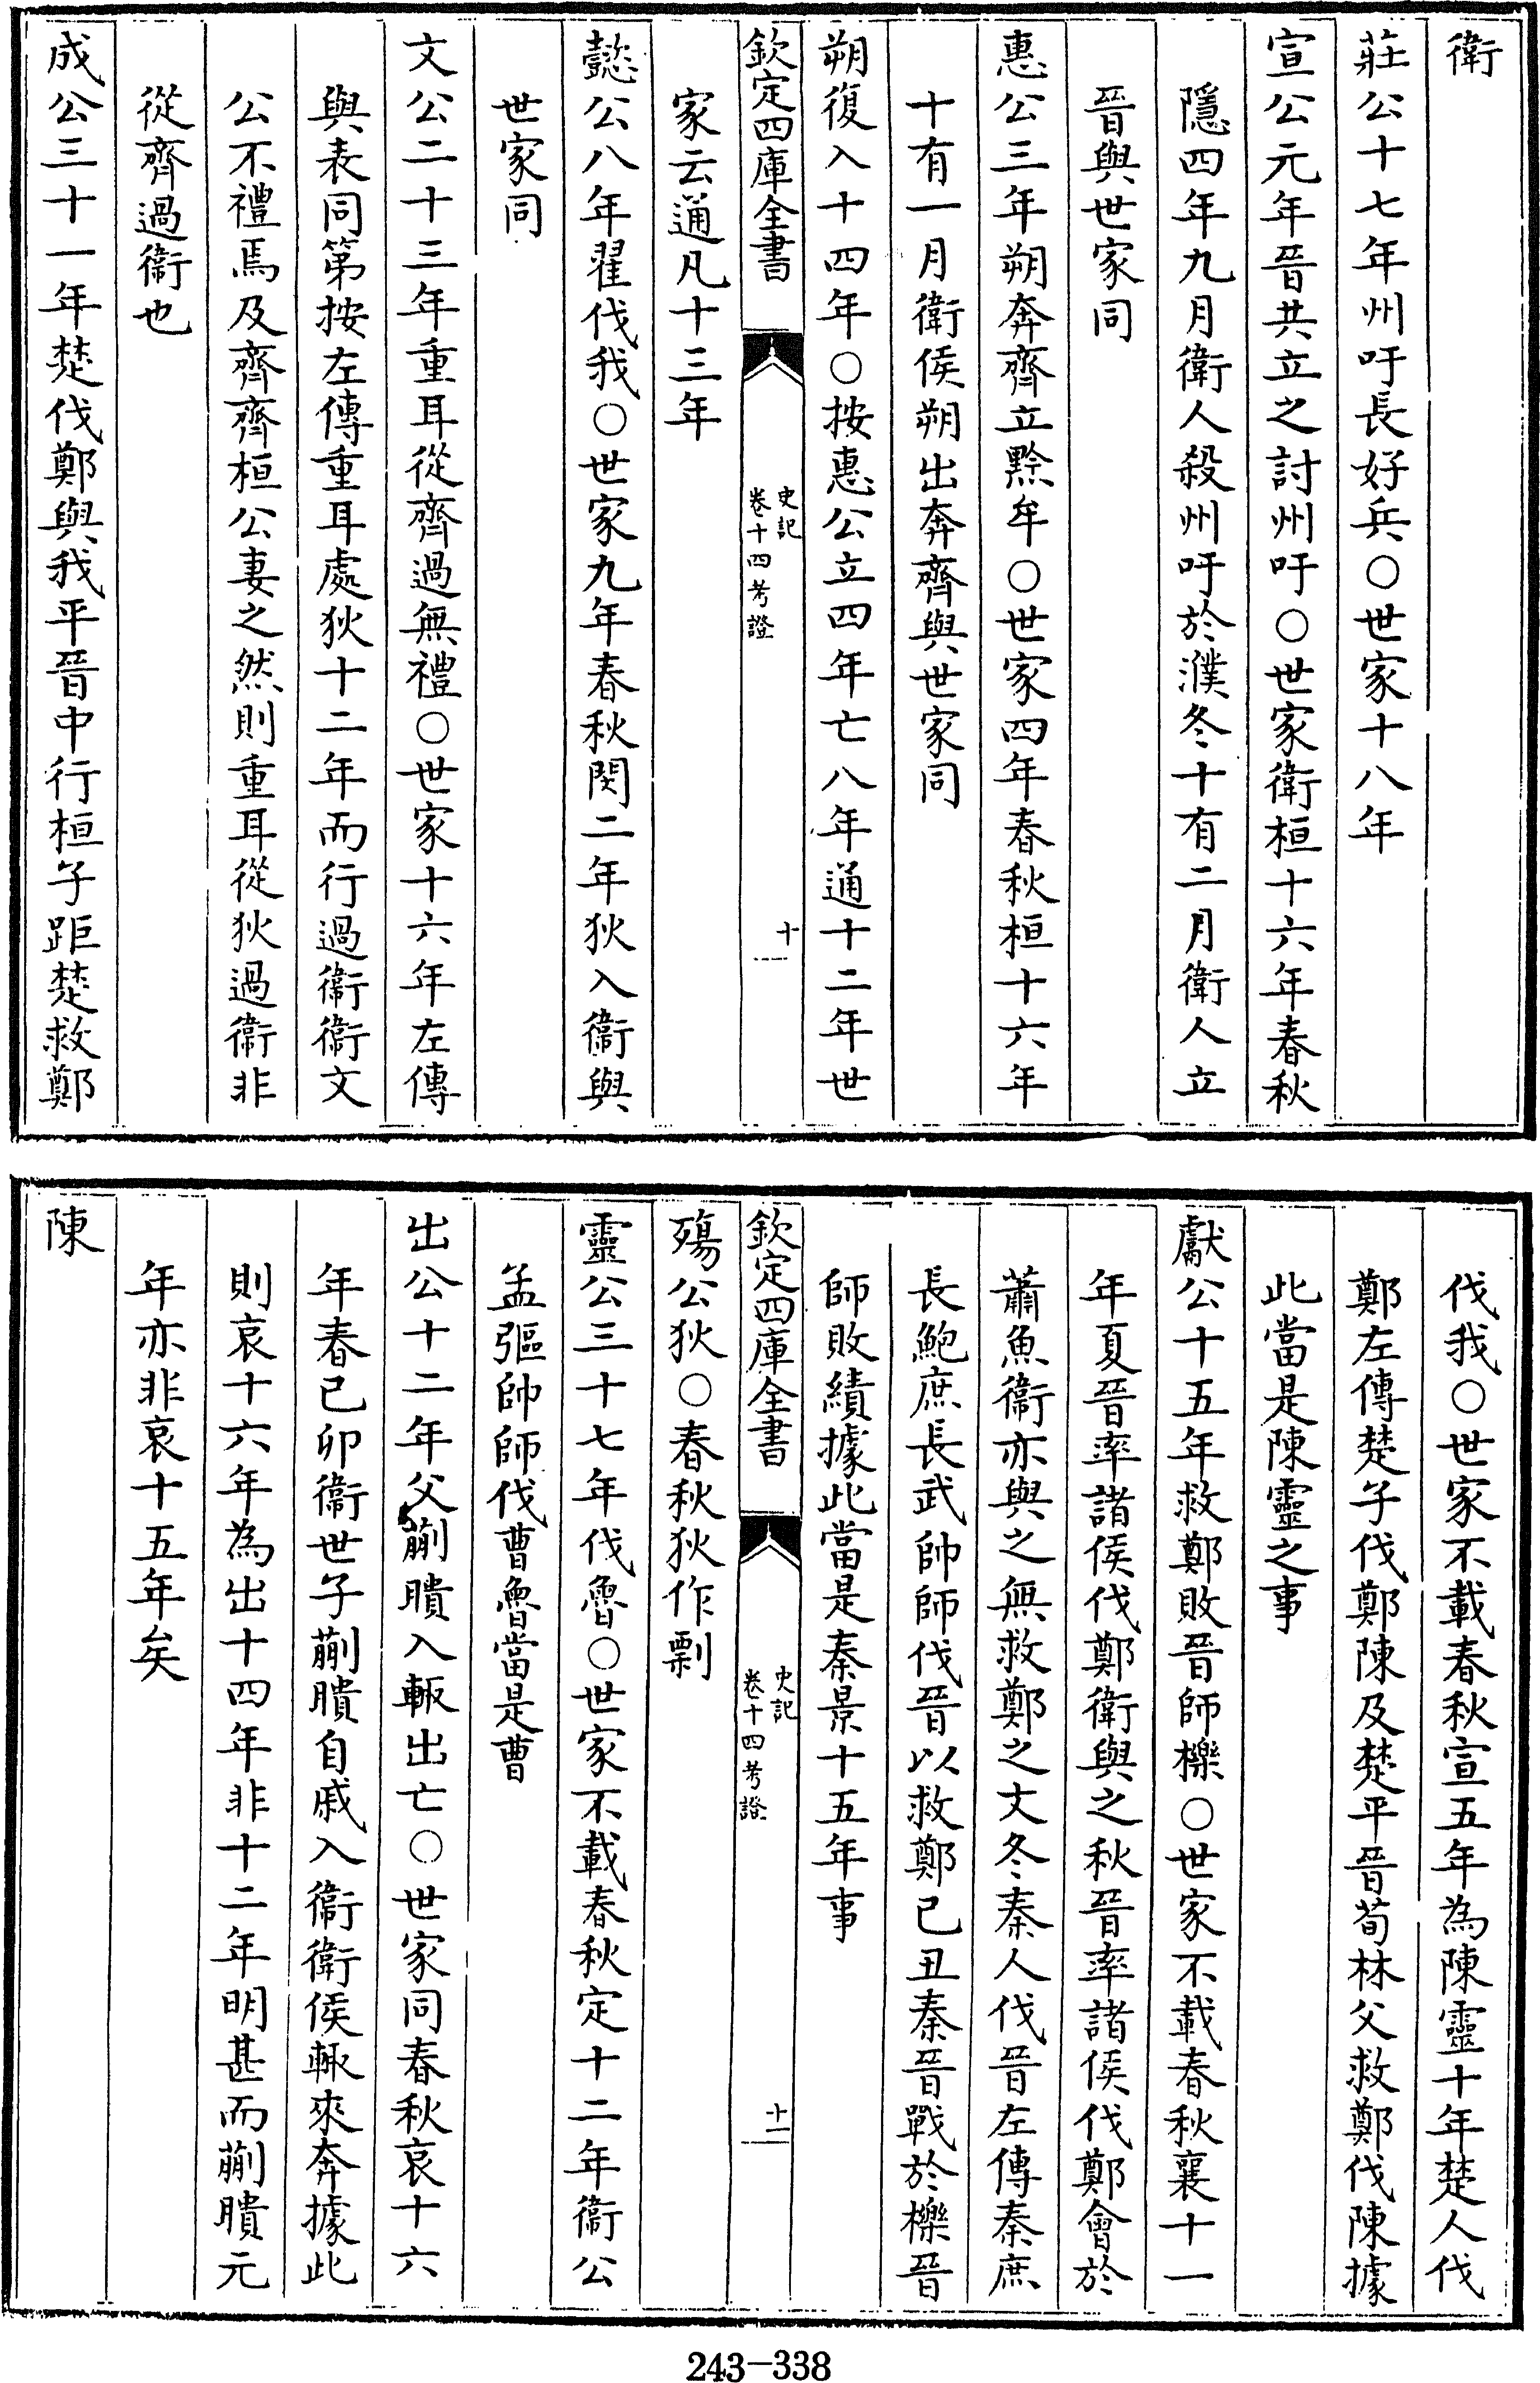 衛
莊公十七年州吁長好兵○世家十八年
宣公元年晉共立之討州吁○世家衛桓十六年春秋
隱四年九月衛人殺州吁於濮冬十有二月衛人立
晉與世家同
惠公三年朔奔齊立黔牟○世家四年春秋桓十六年
十有一月衛侯朔出奔齊與世家同
朔復入十四年○按惠公立四年亡八年通十二年世
欽定四庫全書
史記
卷十四考證
十
家云通凡十三年
懿公八年翟伐我○世家九年春秋閔二年狄入衞與
世家同
文公二十三年重耳從齊過無禮○世家十六年左傳
與表同第按左傳重耳處狄十二年而行過衞衞文
公不禮焉及齊齊桓公妻之然則重耳從狄過衞非
從齊過衞也
成公三十一年楚伐鄭與我平晉中行桓子距楚救鄭
伐我○世家不載春秋宣五年為陳靈十年楚人伐
鄭左傳楚子伐鄭陳及楚平晉荀林父救鄭伐陳據
此當是陳靈之事
獻公十五年救鄭敗晉師櫟○世家不載春秋襄十一
年夏晉率諸侯伐鄭衛與之秋晉率諸侯伐鄭會於
蕭魚衞亦與之無救鄭之文冬秦人伐晉左傳秦庶
長鮑庶長武帥師伐晉以救鄭已丑秦晉戰於櫟晉
師敗績據此當是秦景十五年事
欽定四庫全書
史記
卷十四考證
十一
殤公狄○春秋狄作剽
靈公三十七年伐魯○世家不載春秋定十二年衞公
孟彄帥師伐曹魯當是曹
出公十二年父蒯聵入輒出亡○世家同春秋哀十六
年春己卯衞世子蒯聵自戚入衞衞侯輒來奔據此
則哀十六年為出十四年非十二年明甚而蒯聵元
年亦非哀十五年矣
陳
243-338